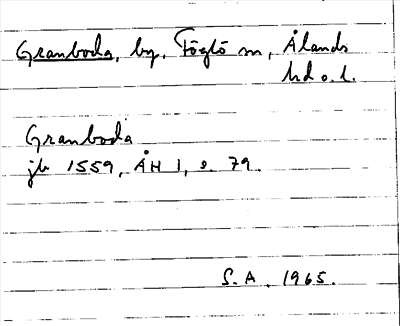 Granboda, by, Föglö sn, Ålands
hd o. l.
Granboda
jb 1559, ÅH 1, s. 79.
S. A. 1965.